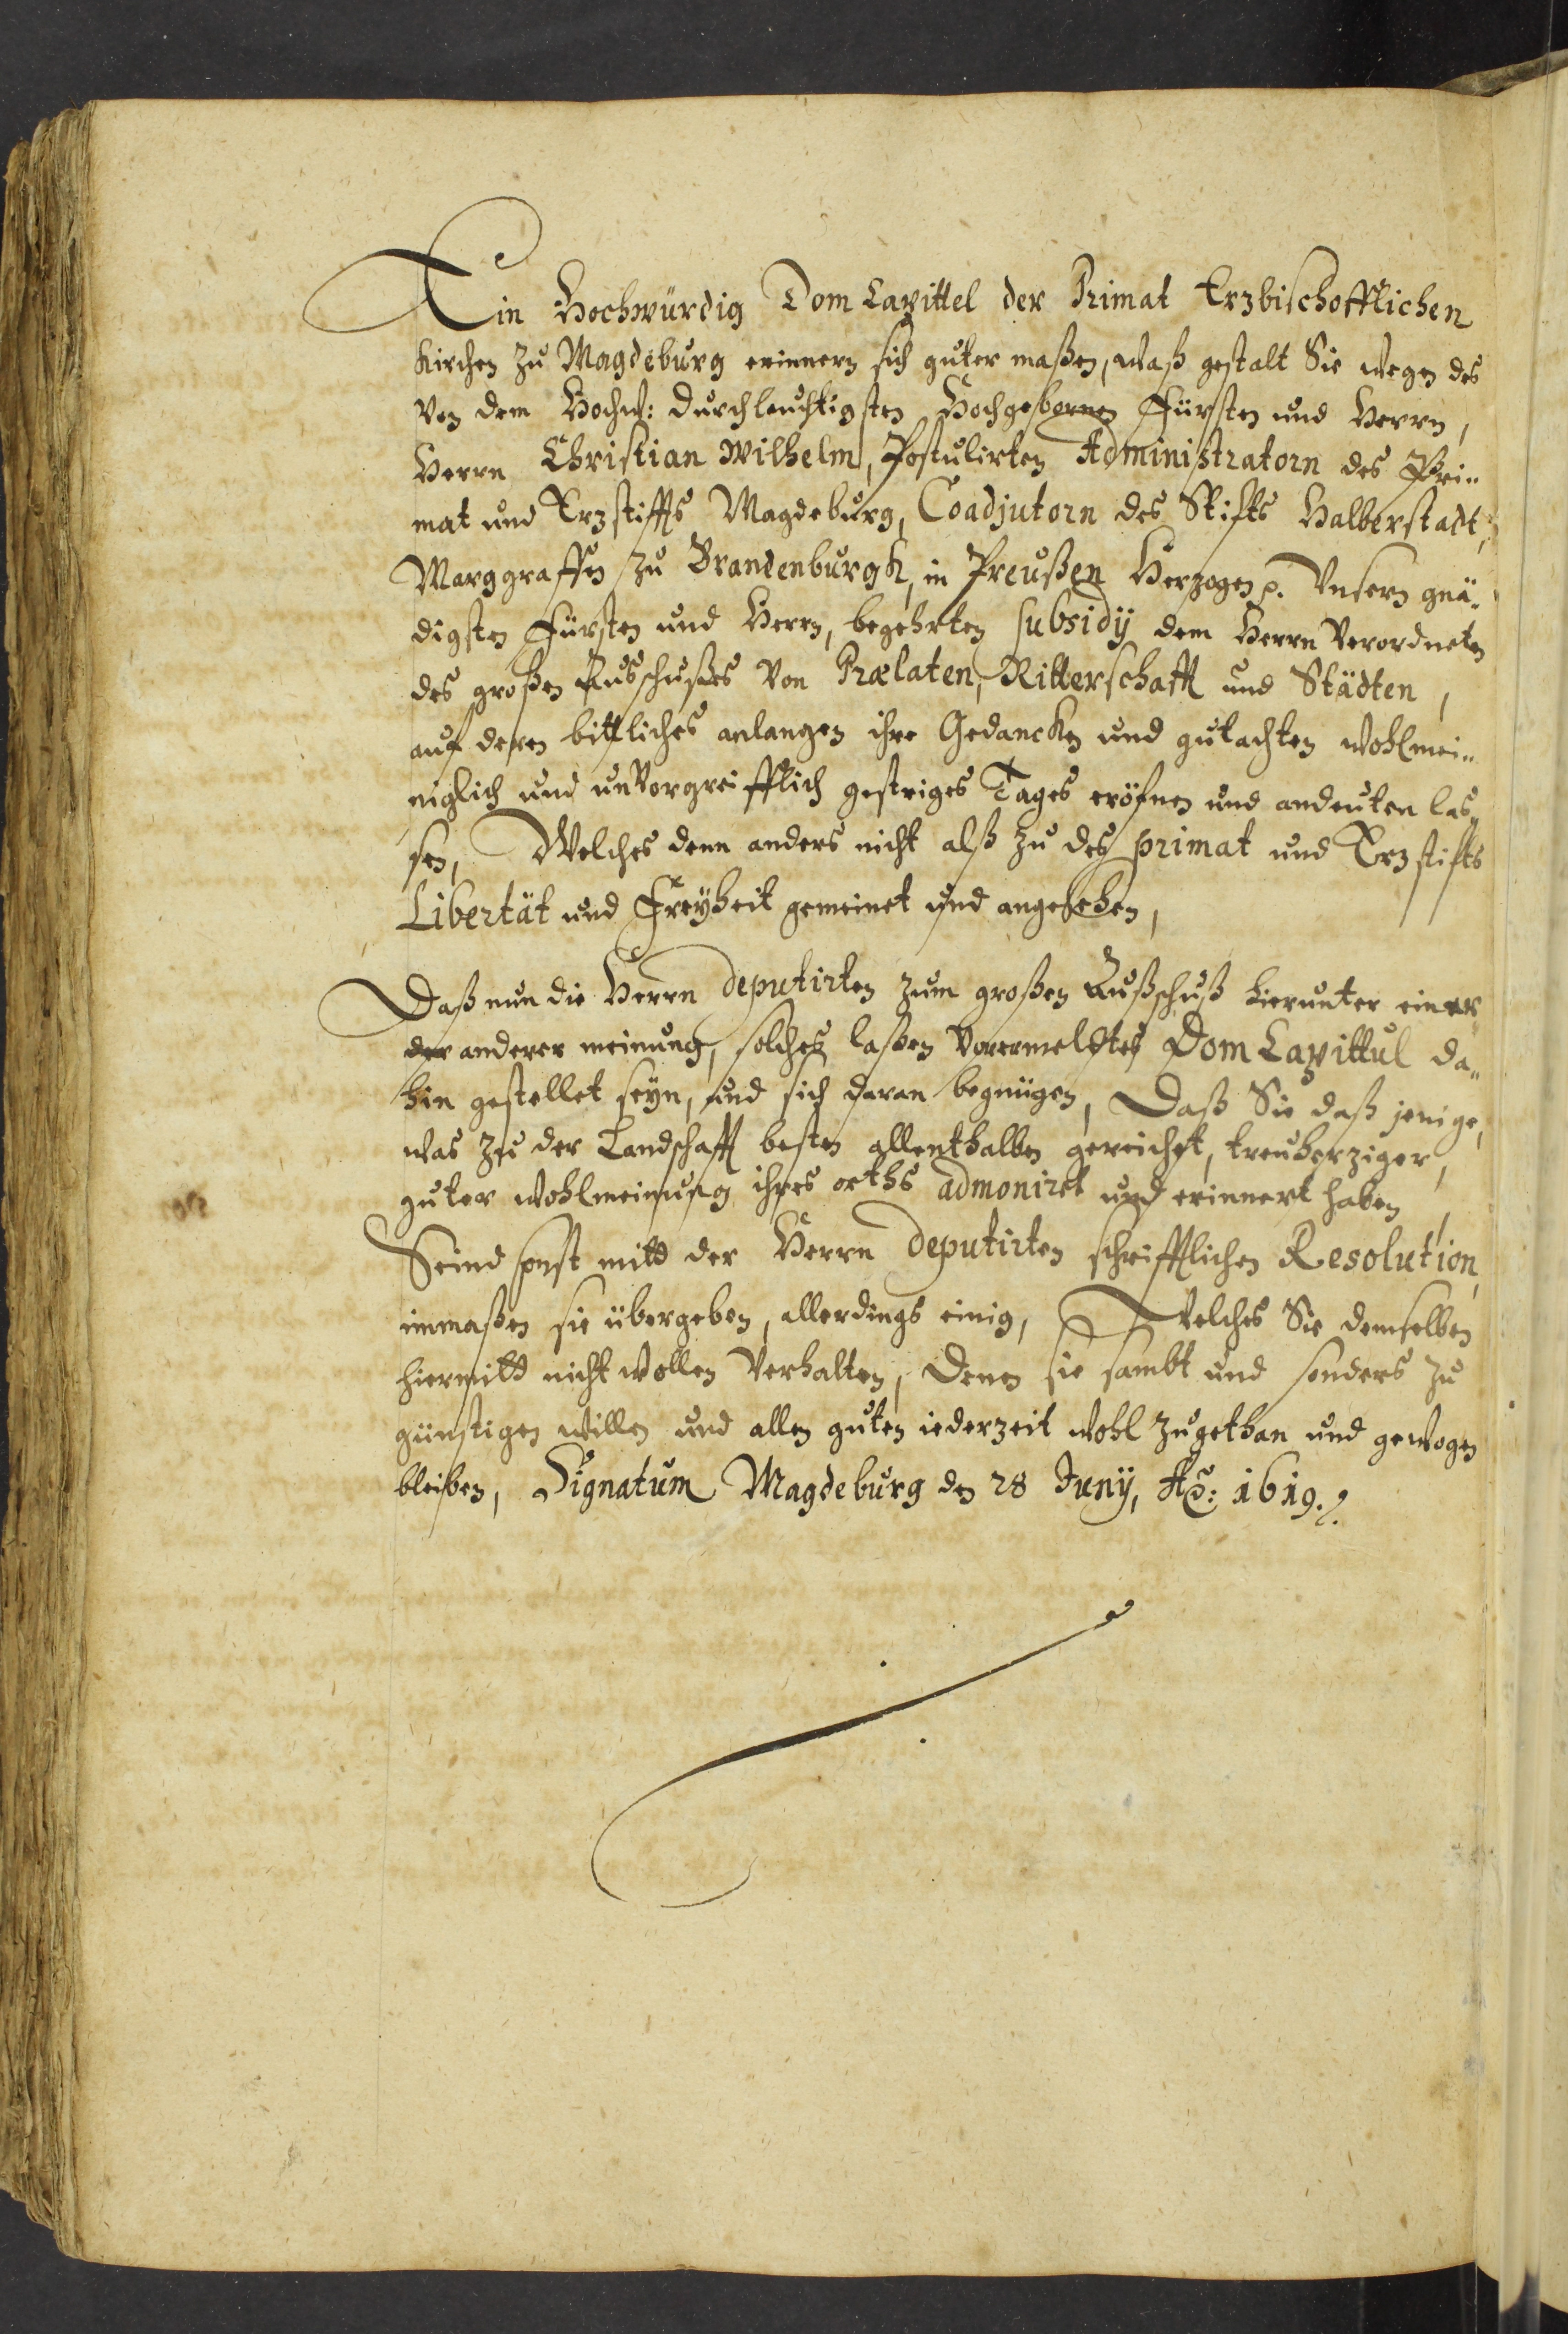 Ein Hochwürdig Dom Capittel der Primat Erzbischofflichen
Kirchen zu Magdeburg erinnern sich guter maßen, waß gestalt Sie wegen des
von dem Hochw: Durchleuchtigsten Hochgebornen Fürsten und Herrn,
Herrn Christian Wilhelm, Postulirten Administratorn des Pri„
mat und Erzstiffts Magdeburg, Coadjutorn des Stifts Halberstadt,
Marggraffen zu Brandenburgk, in Preußen Herzogen p. Unsern gnä„
digsten Fürsten und Herrn, begehrten subsidÿ dem Herrn Verordneten
des großen Ausschußes von Prælaten, Ritterschafft und Städten,
auf deren bittliches anlangen ihre Gedancken und gutachten wohlmei„
niglich und unvorgreifflich gestriges Tages eröfnen und andeuten las„
sen, Welches denn anders nicht alß zu des primat und Erzstifts
Libertät und Freÿheit gemeinet und angesehen,
Daß nun die Herrn deputirten zum großen Außschuß hierunter
der anderer meinung, solches laßen vorermeldtes Dom Capittul da„
hin gestellet seyn, und sich daran begnügen, Daß Sie daß jenige,
was zu der Landschafft besten allenthalben gereichet, treuherziger,
guter wohlmeinung ihres orths admoniret und erinnert haben,
Seind sonst mitt der Herrn deputirten schrifftlichen Resolution,
inmaßen sie übergeben, allerdings einig, Welches Sie demselben
hiermitt nicht wollen verhalten, denen sie sambt und sonders zu
günstigen willen und allen guten iederzeit wohl zugethan und gewogen
bleiben, Signatum Magdeburg den 28 Junÿ, Ao: 1619.